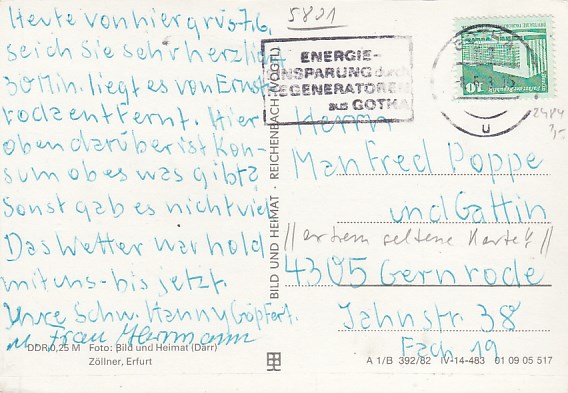 5801
Heute von hier grüs 7.6.
se ich Sie sehr herzlich
30 Min. liegt es von Ernst
roda entfernt. Hier
oben darüber ist Kon-
sum ob es was gibt?
Sonst gab es nicht viel
Das Wetter war hold
mit uns - bis jetzt.
Ihre Schw. Hanny Göpfert.
u Frau Hermann
DDR 0,25 M Foto: Bild und Heimat (Darr)
Zöllner, Erfurt
BILD UND HEIMAT · REICHENBACH (VOGTL)
ENERGIE-
INSPARUNG durch
REGENERATOREN
aus GOTHA
10
u
2484
Herrn
Manfred Poppe
und Gattin
// extrem seltene Karte! //
4305 Gernrode
Jahnstr. 38
Fach 19
A 1/B 392/82 IV-14-483 01 09 05 517